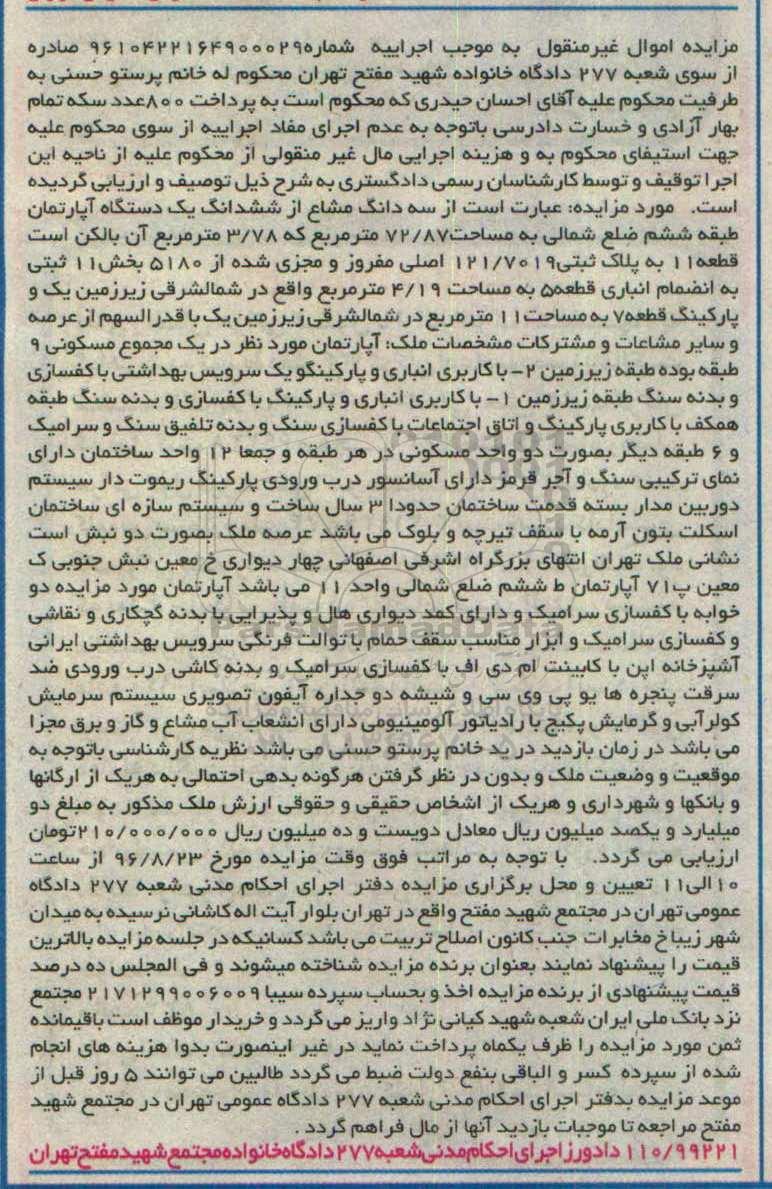 مزایده اموال غیرمنقول به موجب اجراییه شماره۹۶۱۰۴۲۲۱۶۴۹۰۰۰۲۹ صادره
از سوی شعبه ۲۷۷ دادگاه خانواده شهید مفتح تهران محکوم له خانم پرستو حسنی به
طرفیت محکوم علیه آقای احسان حیدری که محکوم است به پرداخت ۸۰۰عدد سکه تمام
بهار آزادی و خسارت دادرسی باتوجه به عدم اجرای مفاد اجراییه از سوی محکوم علیه
جهت استیفای محکوم به و هزینه اجرایی مال غیر منقولی از محکوم علیه از ناحیه این
اجرا توقیف و توسط کارشناسان رسمی دادگستری به شرح ذیل توصیف و ارزیابی گردیده
است. مورد مزایده: عبارت است از سه دانگ مشاع از ششدانگ یک دستگاه آپارتمان
طبقه ششم ضلع شمالی به مساحت۷۲/۸۷ مترمربع که ۳/۷۸ مترمربع آن بالکن است
قطعه۱۱ به پلاک ثبتی۱۲۱/۷۰۱۹ اصلی مفروز و مجزی شده از ۵۱۸۰ بخش۱۱ ثبتی
به انضمام انباری قطعه۵ به مساحت ۴/۱۹ مترمربع واقع در شمالشرقی زیرزمین یک و
پارکینگ قطعه۷ به مساحت۱۱ مترمربع در شمالشرقی زیرزمین یک با قدرالسهم از عرصه
و سایر مشاعات و مشترکات مشخصات ملک: آپارتمان مورد نظر در یک مجموع مسکونی ۹
طبقه بوده طبقه زیرزمین ۲- با کاربری انباری و پارکینگو یک سرویس بهداشتی با کفسازی
و بدنه سنگ طبقه زیرزمین ۱- با کاربری انباری و پارکینگ با کفسازی و بدنه سنگ طبقه
همکف با کاربری پارکینگ و اتاق اجتماعات با کفسازی سنگ و بدنه تلفیق سنگ و سرامیک
و ۶ طبقه دیگر بصورت دو واحد مسکونی در هر طبقه و جمعا ۱۲ واحد ساختمان دارای
نمای ترکیبی سنگ و آجر قرمز دارای آسانسور درب ورودی پارکینگ ریموت دار سیستم
دوربین مدار بسته قدمت ساختمان حدودا ۳ سال ساخت و سیستم سازه ای ساختمان
اسکلت بتون آرمه با سقف تیرچه و بلوک می باشد عرصه ملک بصورت دو نبش است
نشانی ملک تهران انتهای بزرگراه اشرفی اصفهانی چهار دیواری خ معین نبش جنوبی ک
معین پ۷۱ آپارتمان ط ششم ضلع شمالی واحد ۱۱ می باشد آپارتمان مورد مزایده دو
خوابه با کفسازی سرامیک و دارای کمد دیواری هال و پذیرایی با بدنه گچکاری و نقاشی
و کفسازی سرامیک و ابزار مناسب سقف حمام با توالت فرنگی سرویس بهداشتی ایرانی
آشپزخانه اپن با کابینت ام دی اف با کفسازی سرامیک و بدنه کاشی درب ورودی ضد
سرقت پنجره ها یو پی وی سی و شیشه دو جداره آیفون تصویری سیستم سرمایش
کولرآبی و گرمایش پکیج با رادیاتور آلومینیومی دارای انشعاب آب مشاع و گاز و برق مجزا
می باشد در زمان بازدید در ید خانم پرستو حسنی می باشد نظریه کارشناسی باتوجه به
موقعیت و وضعیت ملک و بدون در نظر گرفتن هرگونه بدهی احتمالی به هریک از ارگانها
و بانکها و شهرداری و هریک از اشخاص حقیقی و حقوقی ارزش ملک مذکور به مبلغ دو
میلیارد و یکصد میلیون ریال معادل دویست و ده میلیون ریال ۲۱۰/۰۰۰/۰۰۰تومان
ارزیابی می گردد. با توجه به مراتب فوق وقت مزایده مورخ ۹۶/۸/۲۳ از ساعت
۱۰الی۱۱ تعیین و محل برگزاری مزایده دفتر اجرای احکام مدنی شعبه ۲۷۷ دادگاه
عمومی تهران در مجتمع شهید مفتح واقع در تهران بلوار آیت اله کاشانی نرسیده به میدان
شهر زیبا خ مخابرات جنب کانون اصلاح تربیت می باشد کسانیکه در جلسه مزایده بالاترین
قیمت را پیشنهاد نمایند بعنوان برنده مزایده شناخته میشوند و فی المجلس ده درصد
قیمت پیشنهادی از برنده مزایده اخذ و بحساب سپرده سیبا ۲۱۷۱۲۹۹۰۰۶۰۰۹ مجتمع
نزد بانک ملی ایران شعبه شهید کیانی نژاد واریز می گردد و خریدار موظف است باقیمانده
ثمن مورد مزایده را ظرف یکماه پرداخت نماید در غیر اینصورت بدوا هزینه های انجام
شده از سپرده کسر و الباقی بنفع دولت ضبط می گردد طالبین می توانند ۵ روز قبل از
موعد مزایده بدفتر اجرای احکام مدنی شعبه ۲۷۷ دادگاه عمومی تهران در مجتمع شهید
مفتح مراجعه تا موجبات بازدید آنها از مال فراهم گردد .
۱۱۰/۹۹۲۲۱ دادورز اجرای احکام مدنی شعبه۲۷۷ دادگاه خانواده مجتمع شهید مفتح تهران